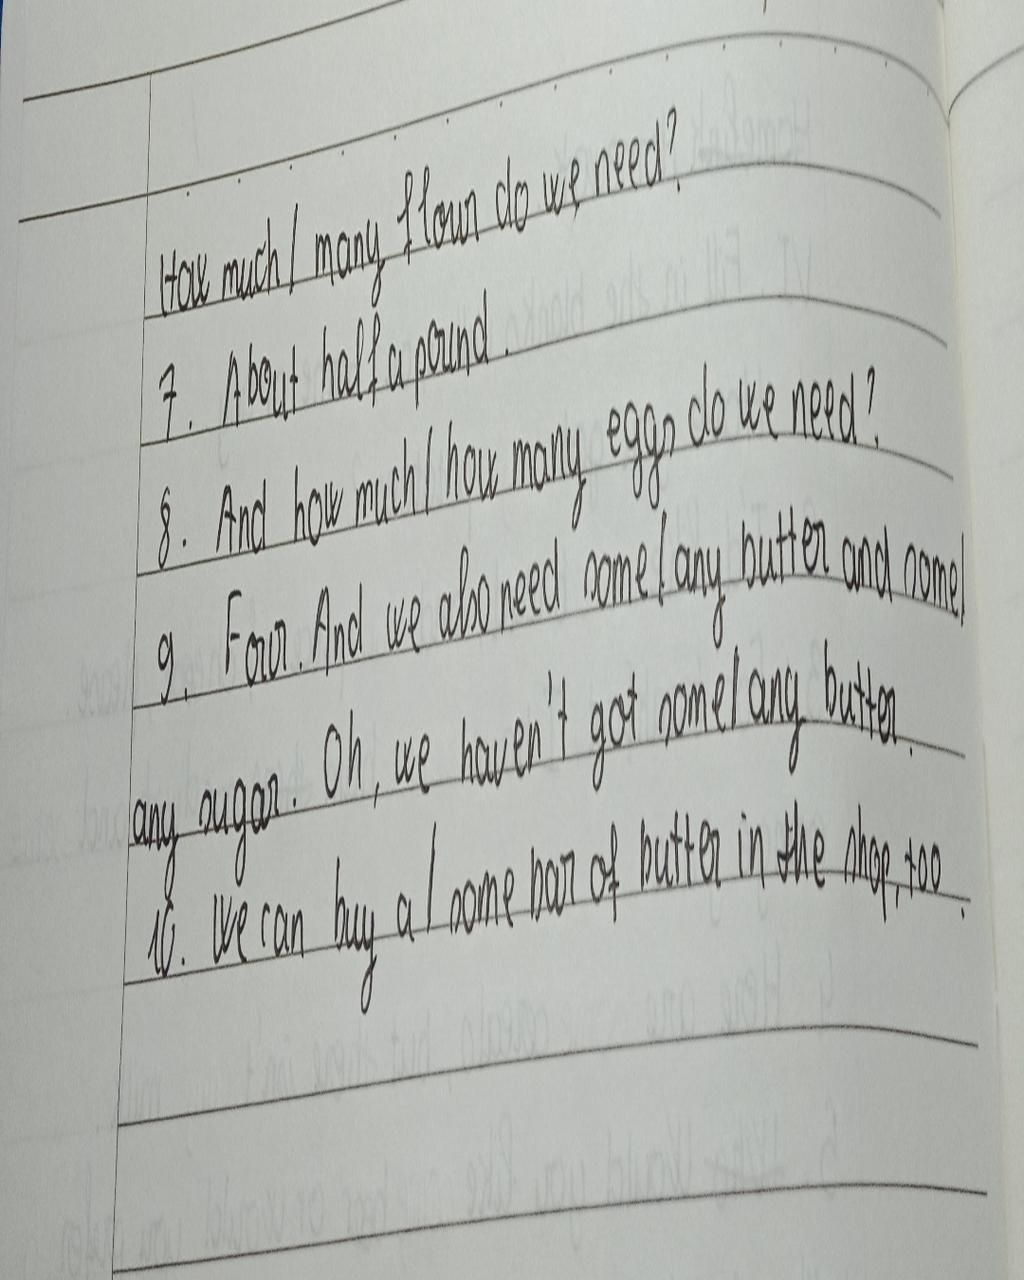 How much/ many flour do we need?
7. About half a pound.
8. And how much/ how many eggs do we need?
9. Four. And we also need some/ any butter and some/
any sugar. Oh, we haven't got some/ any butter.
10. We can buy a/ some bar of butter in the shop, too.